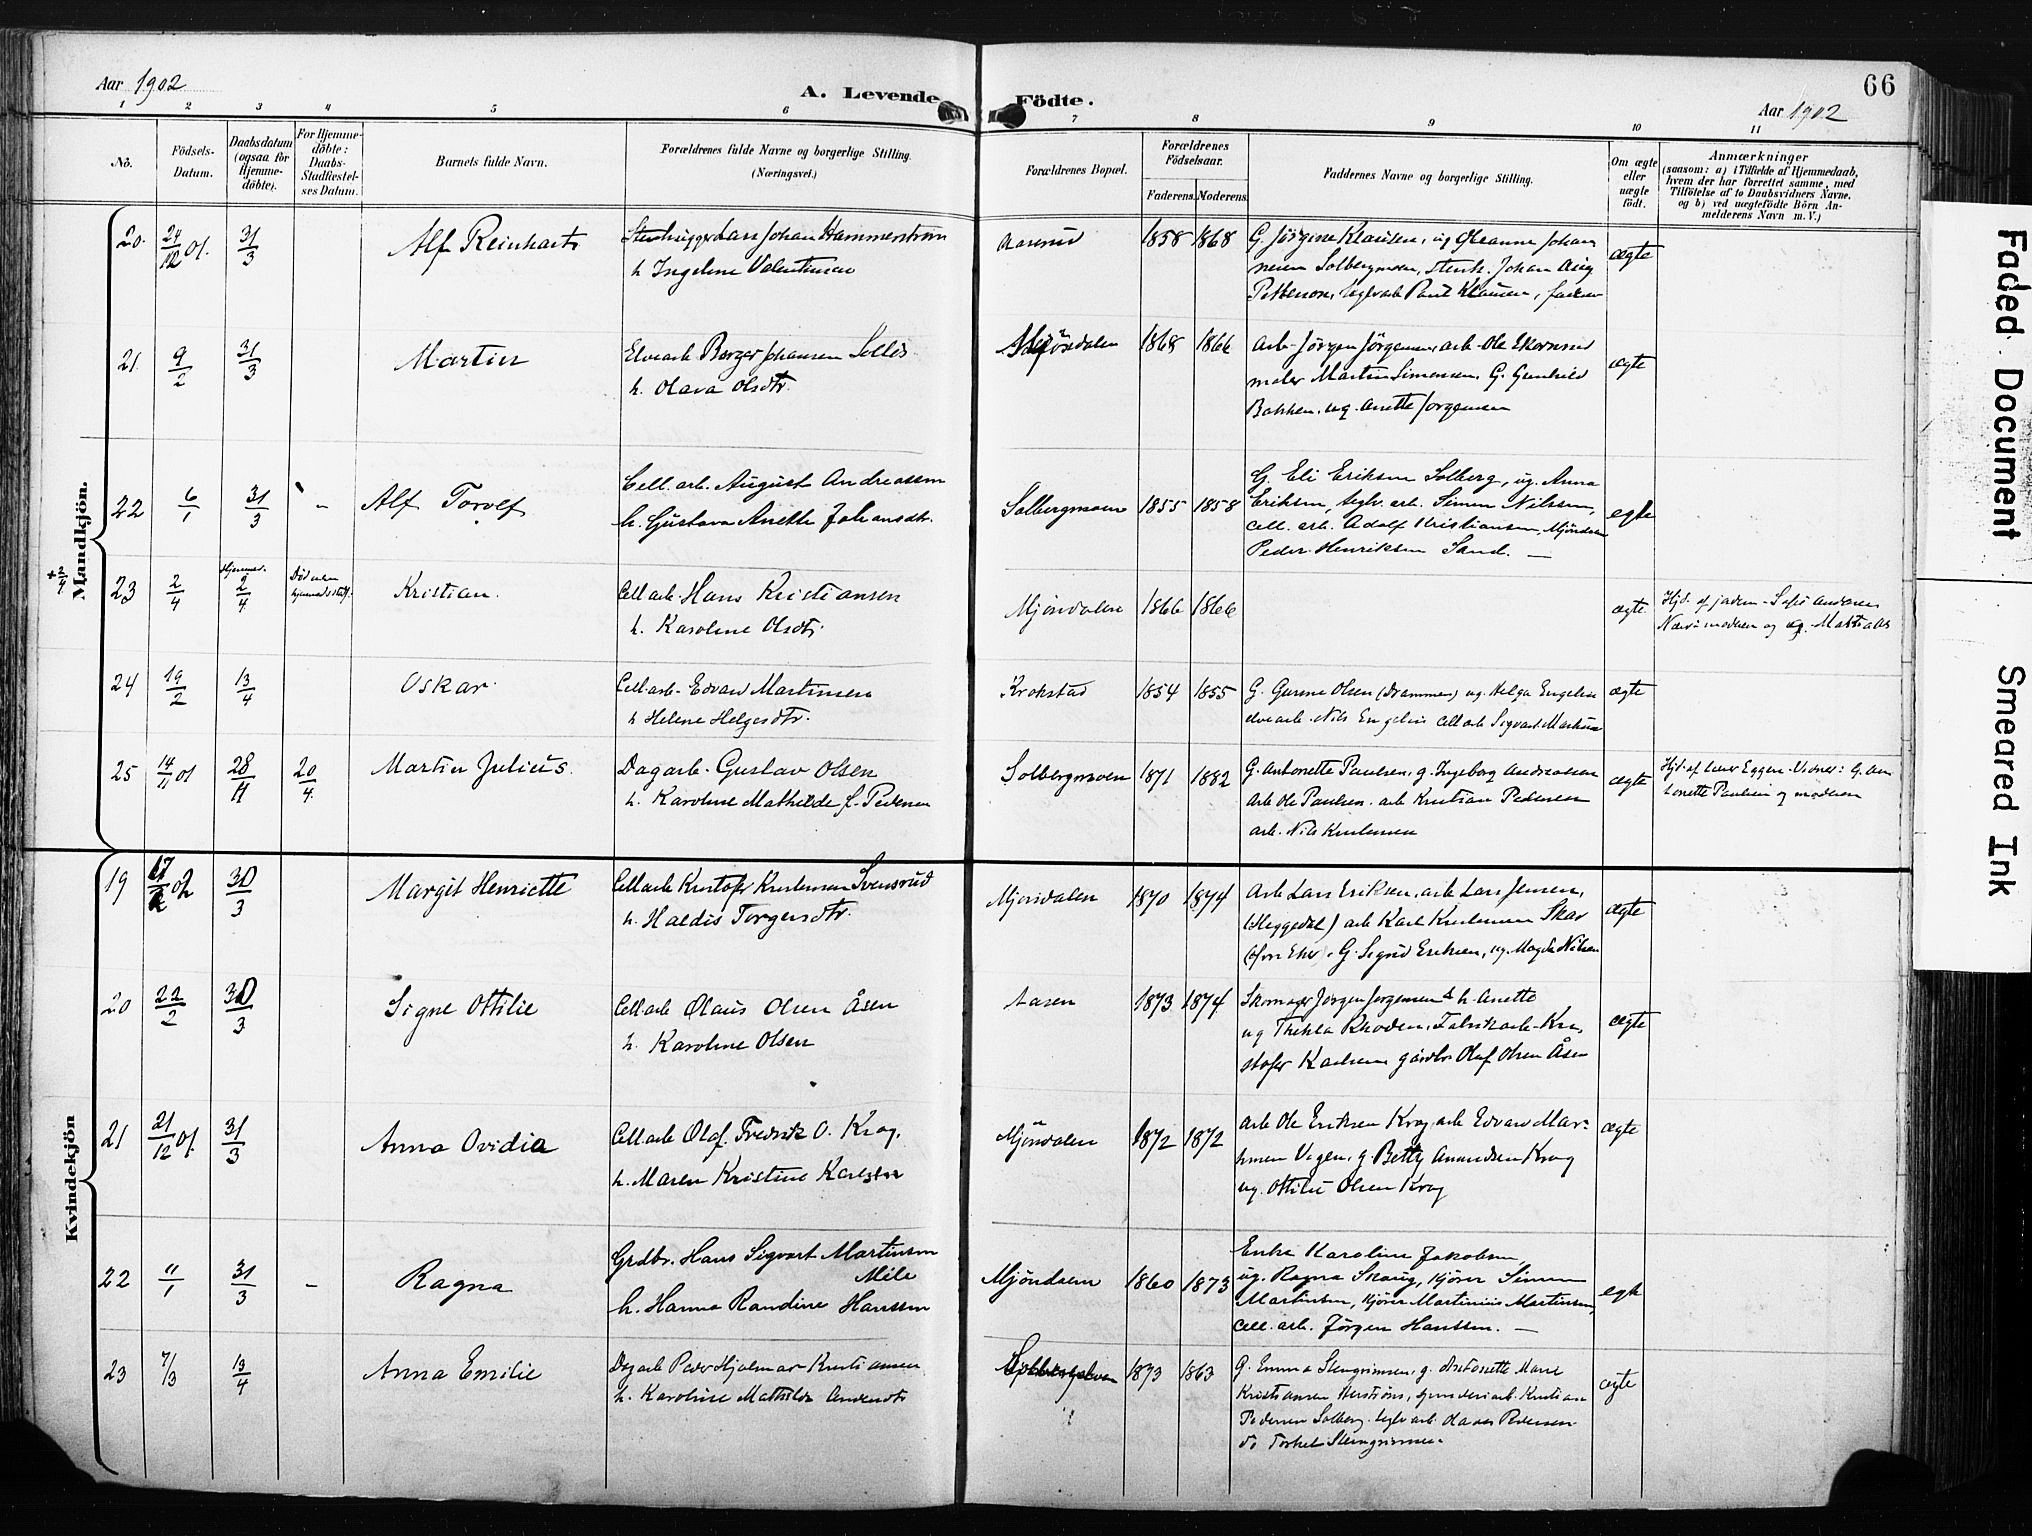 Aar 1902
A. Levende Födte.
66
Aar 1902
1 2 3 4 5 6 7 8 9 10 11
No.
Födsels-Datum.
Daabsdatum (ogsaa for Hjemme-döbte).
For Hjemme-döbte: Daabs-Stadfæstel-ses Datum.
Barnets fulde Navn.
Forældrenes fulde Navne og borgerlige Stilling. (Næringsvei.)
Forældrenes Bopæl.
Forældrenes Födselsaar.
Faderens. Moderens.
Faddernes Navne og borgerlige Stilling.
Om ægte eller uægte födt.
Anmærkninger
(saasom: a) i Tilfælde af Hjemmedaab,
hvem der har forrettet samme, med
Tilföielse af to Daabsvidners Navne,
og b) ved uægtefödte Börn An-
melderens Navn m. V.)
Mandkjön.
20. 24/12 01. 31/3 Alf Reinhart Stenhugger Lars Johan Hammerström Aaserud 1858 1868 G. Jörgine Klausen, ug Oleanne Johan
h Ingeline Valentinen nesen Solbergmoen, stenh. Johan Aug ægte
Petterson, teglvark Paul Klausen, faderen
21. 9/2 31/3 Martin Elvearb Borger Johansen Mjöndalen 1868 1866 Arb. Jörgen Jörgensen, arb Ole Ekornrud ægte
h. Olava Olsdtr. maler Martin Simensen, G. Gunhild
Bakken, ug. Anette Jorgensen
22 6/1 31/3 - Alf Torolf Cell. arb. August Andreassen Solbergmoen 1855 1858 G. Eli Eriksen Solberg, ug. Anna egte
h. Gustava Anette Johansdtr. Eriksen, teglv. arb. Simen Nilssen,
Cell. arb. Adolf Kristiansen, Mjöndalen
Peder Henriksen Sand. —
+2/4 23 2/4 Hjemmed. 2/4 Död uden Kristian. Cellarb. Hans Kristiansen Mjöndalen 1866 1866 ægte Hjd. af jordm. Sofie Andersen
h. Karoline Olsdtr. Nærv: moderen og
24 19/2 13/4 Oskar. Cellarb. Edvard Martinsen Krokstad 1854 1855 G. Gurine Olsen (Drammen) ug. Helga Engelien ægte
h Helene Helgesdtr. elvearb. Nils Engelien cellarb Sigvart Martinsen
25 14/11 01 28/11 20/4 Martin Julius. Dagarb. Gustav Olsen Solbergmoen 1871 1882 G. Antonette Paulsen, g. Ingeborg Andreassen ægte Hjd. af lærer Eggen. Vidner: G. An
h. Karoline Mathilde f. Pedersen Arb Ole Paulsen. arb Kristian Pedersen tonette Paulsen og moderen
arb. Nils Kristensen
Kvindekjön
19 17/2 02 30/3 Margit Henriette Cellarb Kristofer Kristensen Svensrud Mjöndalen 1870 1874 Arb Lars Eriksen, arb Lars Jensen, ægte
h. Haldis Torgersdtr. (Heggedal) arb Karl Kristensen Skar
(Övre Eker). G. Sigrid Eriksen, ug. Magda Nilsen
20 22/2 30/3 Signe Ottilie Cellarb Olaus Olsen Åsen Aasen 1873 1874 Skomager Jörgen Jorgensen & h. Anette ægte
h. Karoline Olsen ug Thekla Rhoden, Fabrikarb. Kri
stofer Karlsen, gårdbr Olaf Olsen Åsen
21 21/12 01. 31/3 Anna Ovidia Cellarb Olaf Fredrik O. Krog, Mjöndalen 1872 1872 Arb Ole Eriksen Krog, arb Edvard Mar- ægte
h. Maren Kristine Karlsdtr tinsen Vegen, g. Betty Amundsen Krog
ug. Ottilie Olsen Krog
22 11/1 31/3 - Ragna Grdbr. Hans Sigvart Martinsen Mjöndalen 1860 1873 Enke Karoline Jakobsen, egte
Mile ug. Ragna Skaug, kjörer Simen
h. Hanna Randine Hanssen Martinsen, kjörer Martinius Martinsen,
Cell. arb. Jørgen Hanssen. —
23 7/3 13/4 Anna Emilie Dagarb Peder Hjalmar Kristiansen 1873 1863 G. Emma Stengrimsen, g. Antonette Marie ægte
h. Karoline Mathilde Kristiansen, Kristian
Pedersen Solberg. teglv arb. Olaves Pedersen
do Torkel Stengrimsen.
Faded Document
Smeared Ink